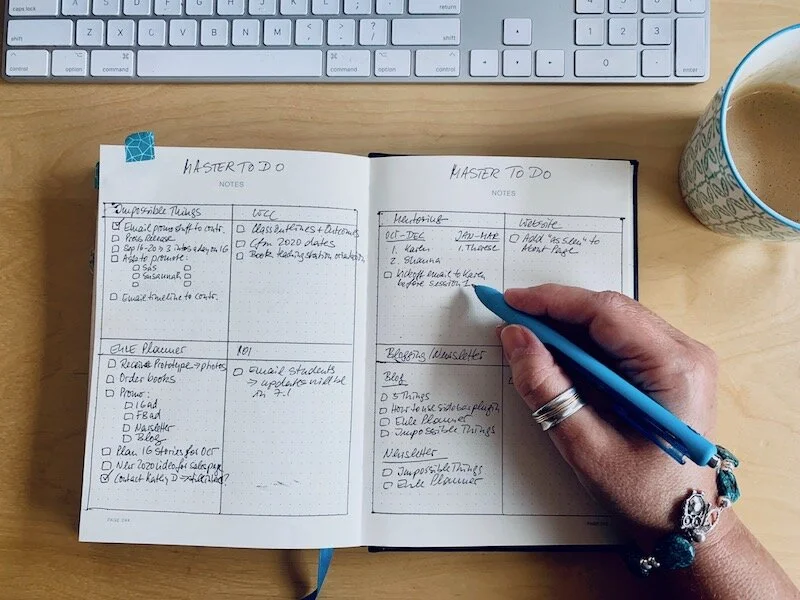 caps lock
A
S
D
F
G
H
J
K
L
return
shift
Z
X
C
V
B
N
M
shift
1
2
3
control
option
command
command
option
control
0
enter
MASTER TO DO
NOTES
Impossible Things
Email promo stuff to contr.
Press Release
Sep 16-20 → 3 on 16
Ask to promote:
Sas
Susannah
Email timeline to contr.
WCC
Class Outlines + Outcomes
Cfm 2020 dates
Book teaching station orientation
EHLE Planner
Receive Prototype → photos
Order books
Promo:
IG ad
FB ad
Newsletter
Blog
Plan IG stories for Oct
New 2020 video for sales page
Contact Kathy D → ?
Email students
→ updates will be
in 7.1
MASTER TO DO
NOTES
Mentoring
OCT-DEC
1. Karen
2. Shauna
JAN-MAR
1. Therese
Kickoff email to Karen
before session 1
Website
Add "as seen" to
About Page
Blogging/Newsletter
Blog
5 Things
How to use sidebar plugin
Ehle Planner
Impossible Things
Newsletter
Impossible Things
Ehle Planner